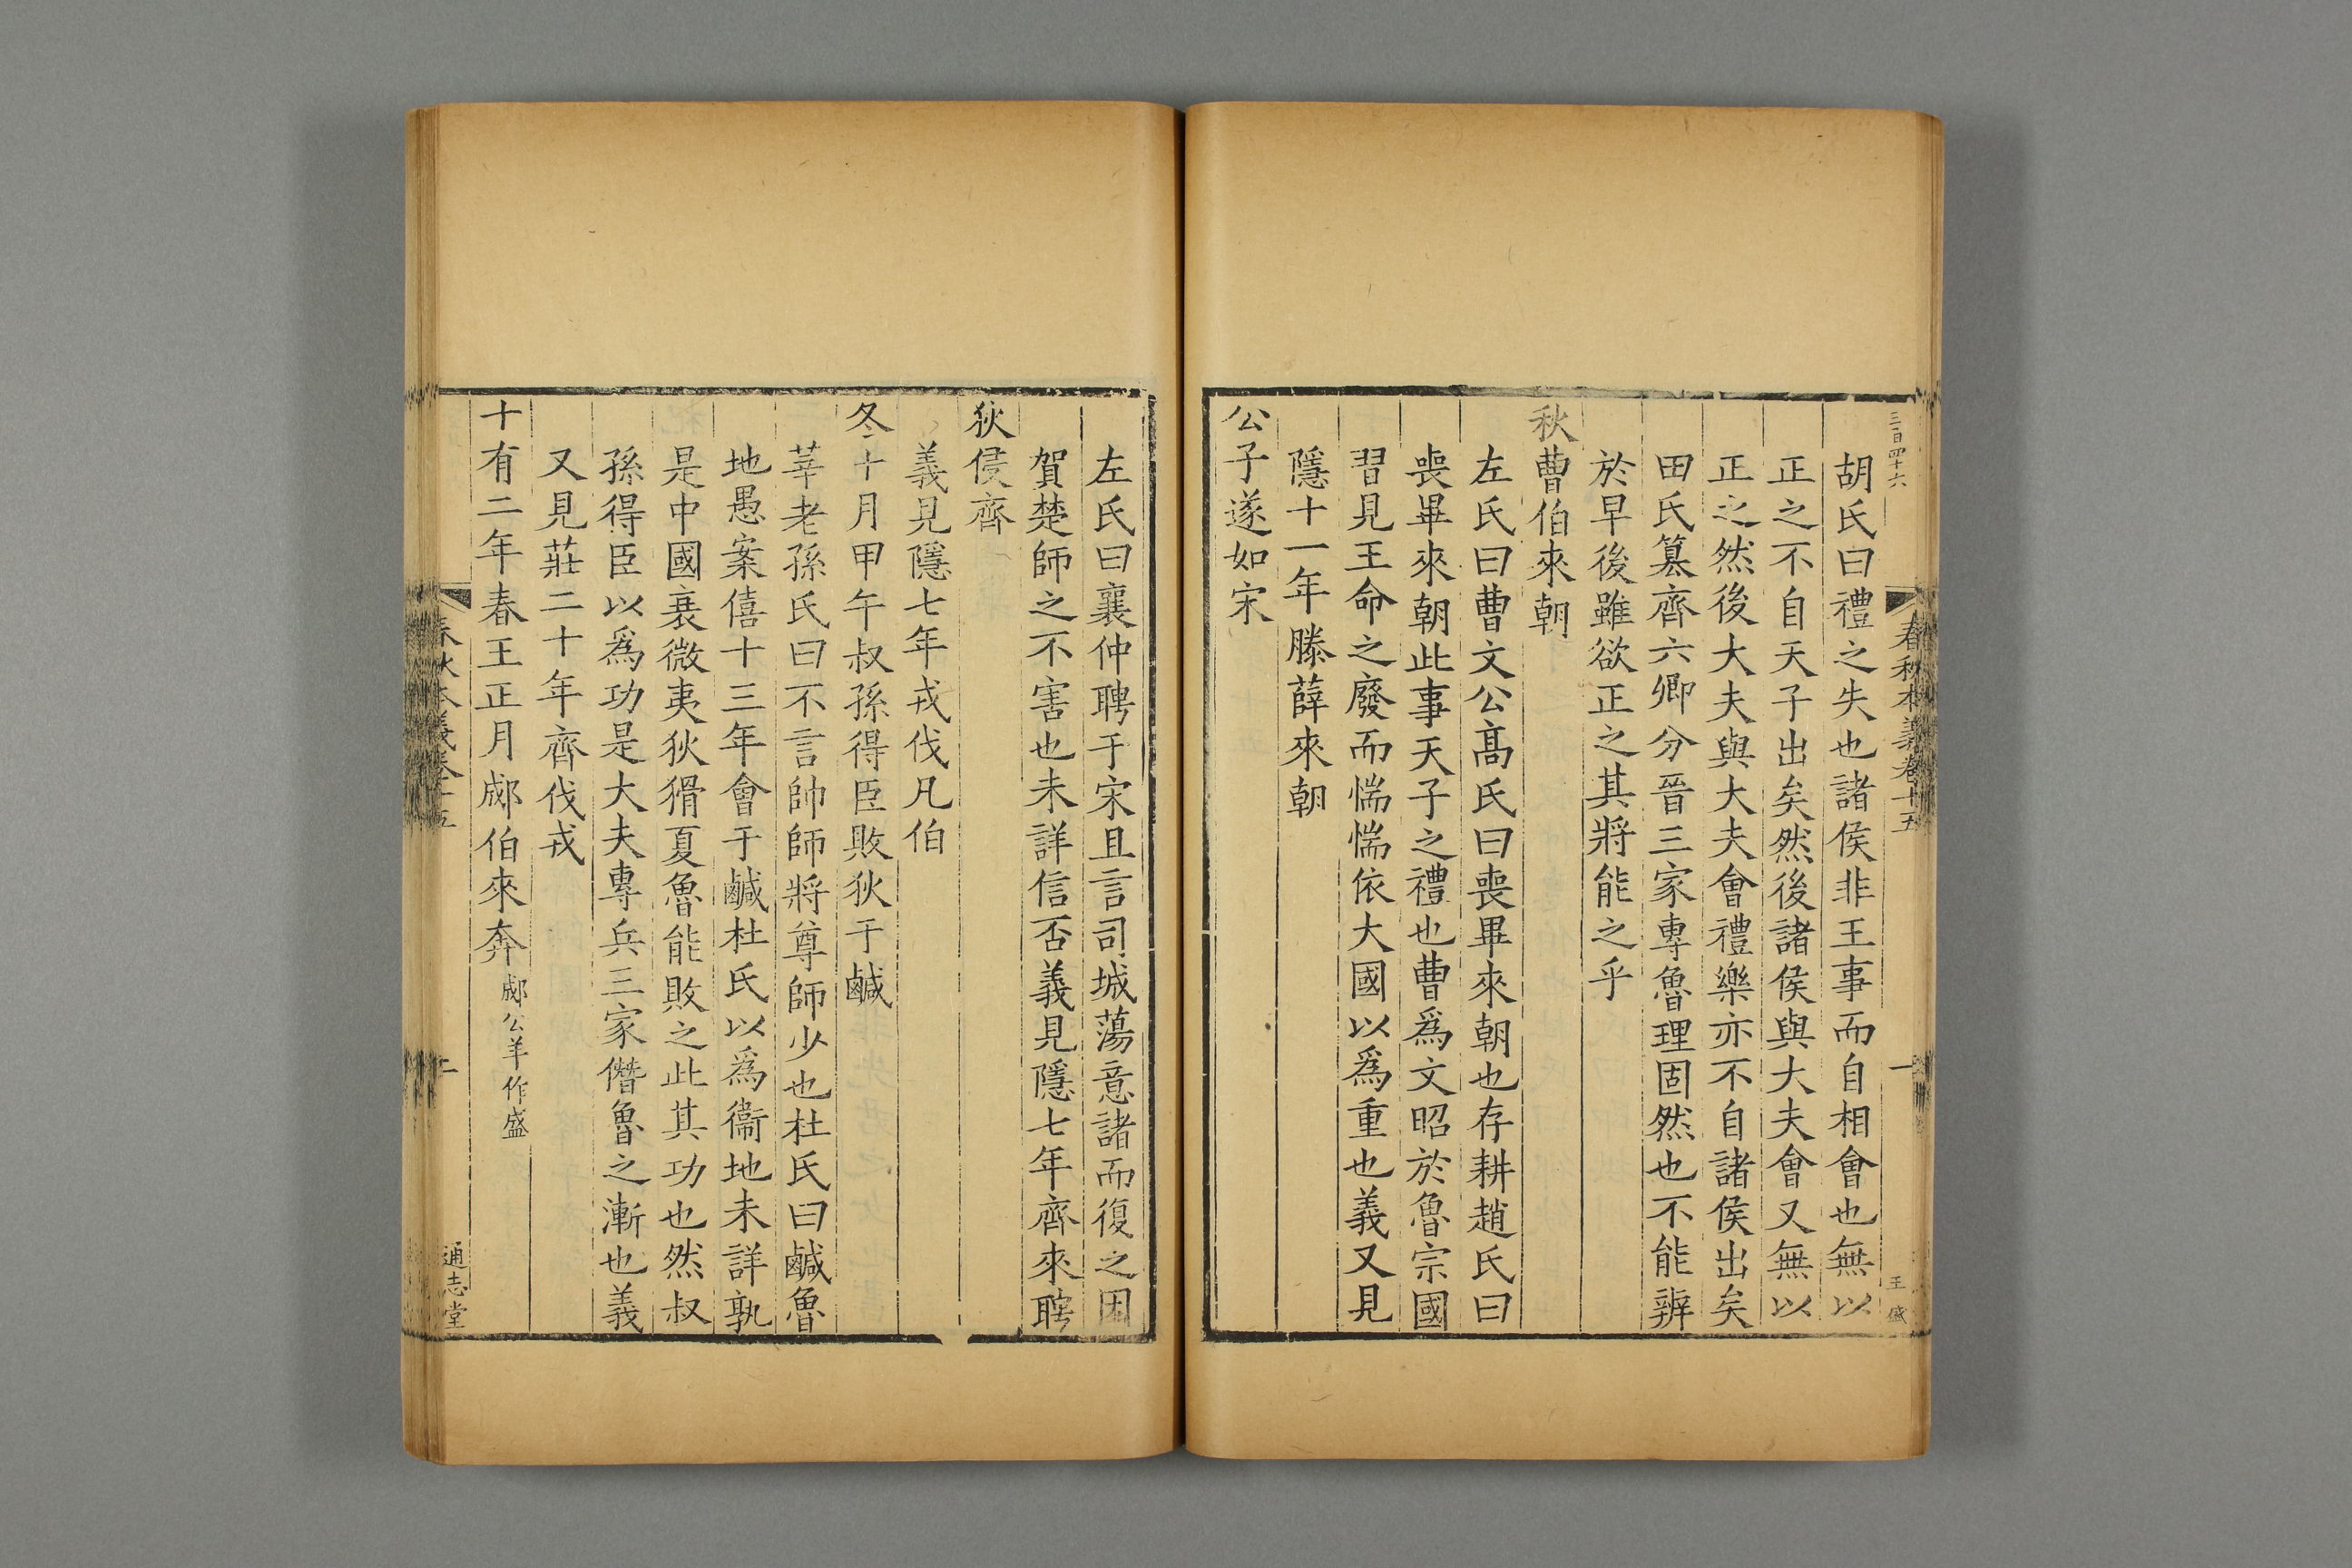 三百四十六
春秋本義卷十五
一
王
胡氏曰禮之失也諸侯非王事而自相會也無以
正之不自天子出矣然後諸侯與大夫會又無以
正之然後大夫與大夫會禮樂亦不自諸侯出矣
田氏簒齊六卿分晉三家專魯理固然也不能辨
於早後雖欲正之其將能之乎
秋曹伯來朝
左氏曰曹文公髙氏曰喪畢來朝也存耕趙氏曰
喪畢來朝此事天子之禮也曹爲文昭於魯宗國
習見王命之廢而惴惴依大國以爲重也義又見
隱十一年滕薛來朝
公子遂如宋
左氏曰襄仲聘于宋且言司城蕩意諸而復之因
賀楚師之不害也未詳信否義見隱七年齊來聘
狄侵齊
義見隱七年戎伐凡伯
冬十月甲午叔孫得臣敗狄于鹹
莘老孫氏曰不言帥師將尊師少也杜氏曰鹹魯
地愚案僖十三年會于鹹杜氏以爲衞地未詳孰
是中國衰微夷狄猾夏魯能敗之此其功也然叔
孫得臣以爲功是大夫專兵三家僭魯之漸也義
又見莊二十年齊伐戎
十有二年春王正月郕伯來奔郕公羊作盛
春秋本義卷十五
二
通志堂